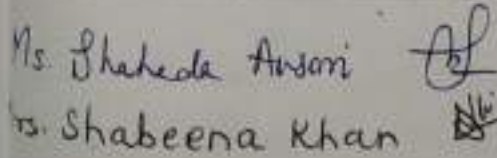 Ms. Shaheda Ansari
rs. Shabeena Khan